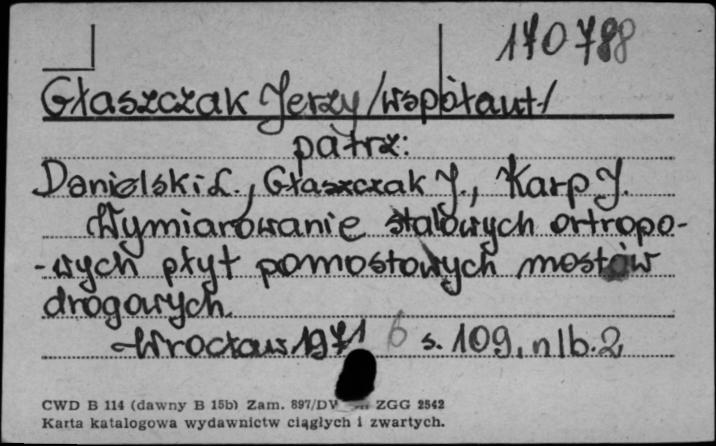 170788
Głaszczak Jerzy /współaut/
patrz:
Danielski L., Głaszczak J., Karp J.
Wymiarowanie stalowych ortropo-
-wych płyt pomostowych mostów
drogowych.
Wrocław 1971 6 s. 109, nlb. 2
CWD B 114 (dawny B 15b) Zam. 897/DV ZGG 2542
Karta katalogowa wydawnictw ciągłych i zwartych.